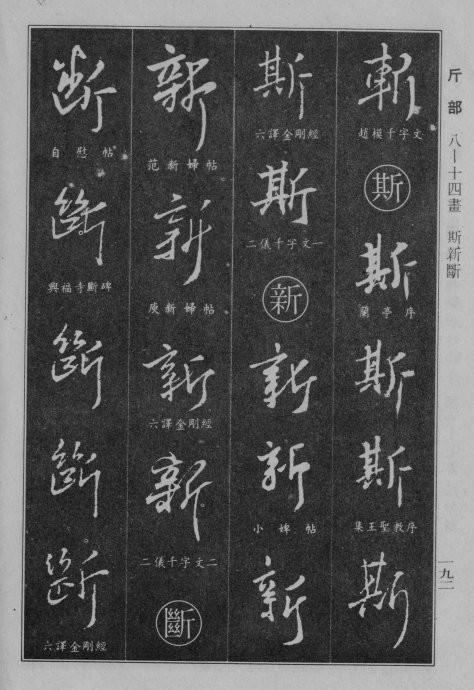 斤部 八—十四畫 斯新斷
斬
趙模千字文
斯
斯
蘭亭序
斯
斯
集王聖教序
斯
斯
六譯金剛經
斯
二儀千字文一
新
新
新
小婢帖
新
新
范新婦帖
新
庾新婦帖
新
六譯金剛經
新
二儀千字文二
斷
断
自慰帖
斷
興福寺斷碑
斷
斷
斷
六譯金剛經
一九二